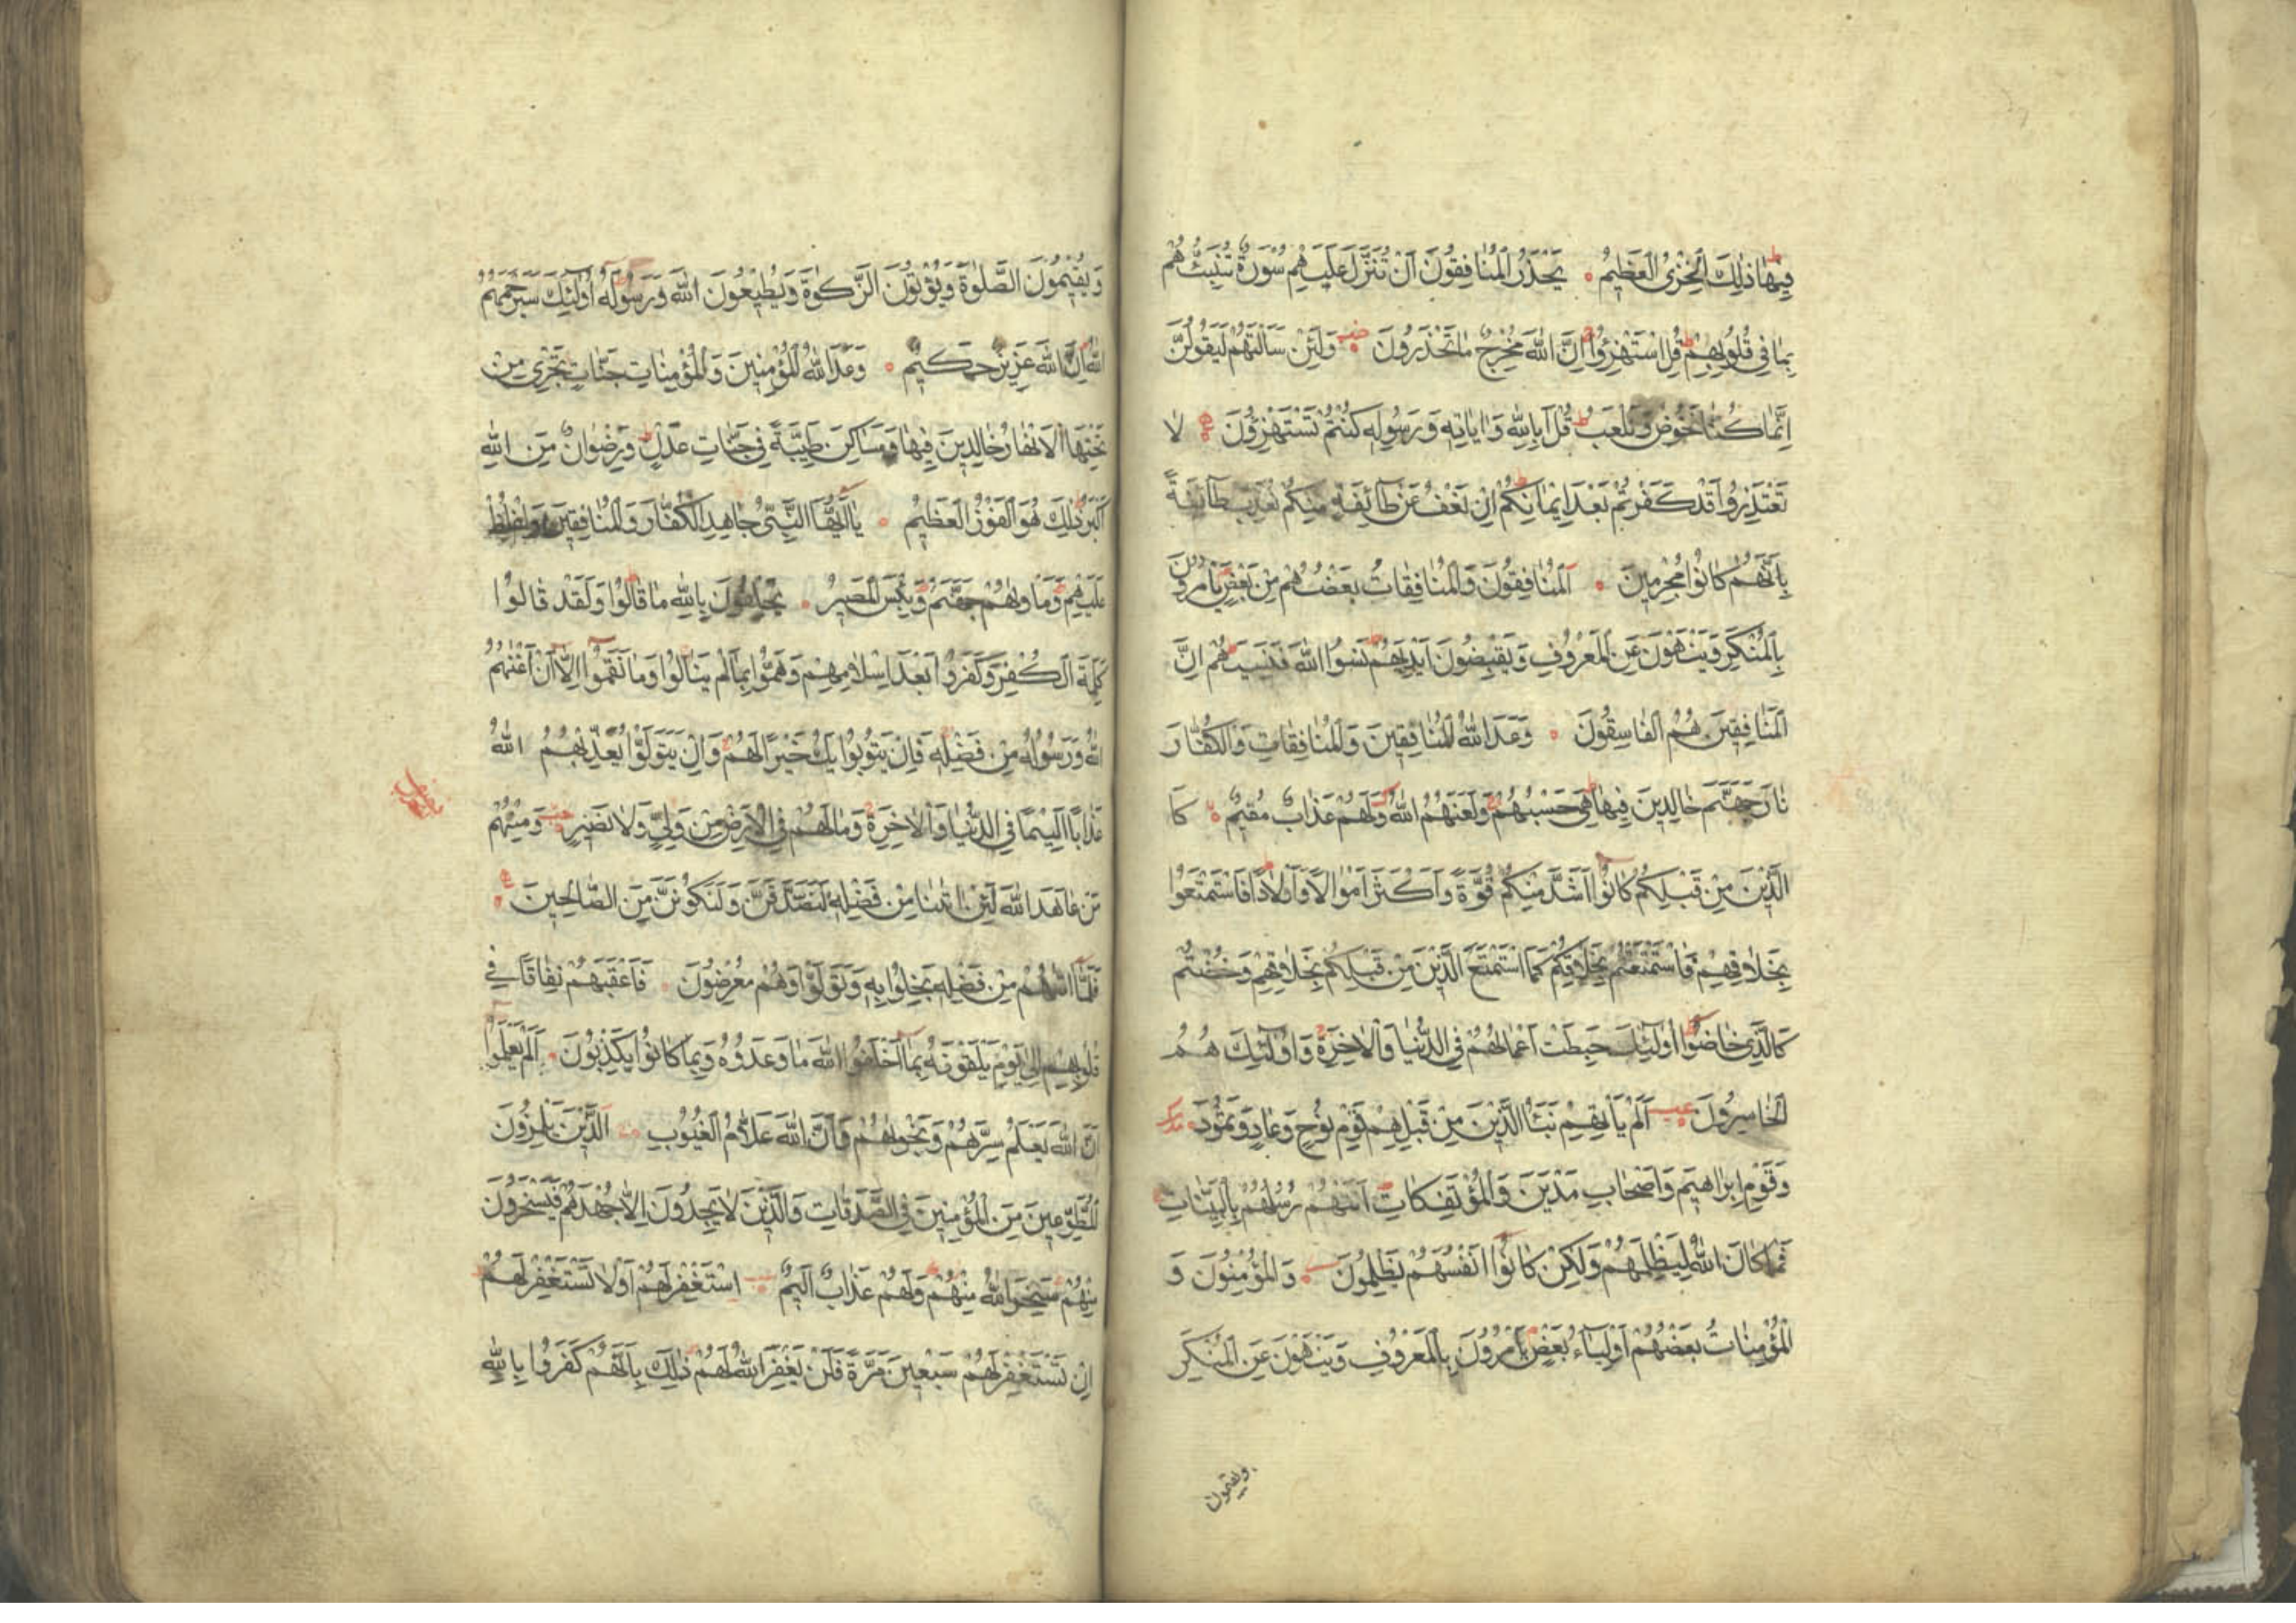 فِيهَا ذٰلِكَ الْخِزْىُ الْعَظِيمُ يَحْذَرُ الْمُنَافِقُونَ اَنْ تُنَزَّلَ عَلَيْهِمْ سُورَةٌ تُنَبِّئُهُمْ
بِمَا فِى قُلُوبِهِمْ قُلِ اسْتَهْزِؤُا اِنَّ اللّٰهَ مُخْرِجٌ مَا تَحْذَرُونَ وَلَئِنْ سَاَلْتَهُمْ لَيَقُولُنَّ
اِنَّمَا كُنَّا نَخُوضُ وَنَلْعَبُ قُلْ اَبِاللّٰهِ وَاٰيَاتِهِ وَرَسُولِهِ كُنْتُمْ تَسْتَهْزِؤُنَ لَا
تَعْتَذِرُوا قَدْ كَفَرْتُمْ بَعْدَ اِيمَانِكُمْ اِنْ نَعْفُ عَنْ طَآئِفَةٍ مِنْكُمْ نُعَذِّبْ طَآئِفَةً
بِاَنَّهُمْ كَانُوا مُجْرِمِينَ اَلْمُنَافِقُونَ وَالْمُنَافِقَاتُ بَعْضُهُمْ مِنْ بَعْضٍ يَأْمُرُونَ
بِالْمُنْكَرِ وَيَنْهَوْنَ عَنِ الْمَعْرُوفِ وَيَقْبِضُونَ اَيْدِيَهُمْ نَسُوا اللّٰهَ فَنَسِيَهُمْ اِنَّ
الْمُنَافِقِينَ هُمُ الْفَاسِقُونَ وَعَدَ اللّٰهُ الْمُنَافِقِينَ وَالْمُنَافِقَاتِ وَالْكُفَّارَ
نَارَ جَهَنَّمَ خَالِدِينَ فِيهَا هِىَ حَسْبُهُمْ وَلَعَنَهُمُ اللّٰهُ وَلَهُمْ عَذَابٌ مُقِيمٌ كَا
الَّذِينَ مِنْ قَبْلِكُمْ كَانُوا اَشَدَّ مِنْكُمْ قُوَّةً وَاَكْثَرَ اَمْوَالًا وَاَوْلَادًا فَاسْتَمْتَعُوا
بِخَلَاقِهِمْ فَاسْتَمْتَعْتُمْ بِخَلَاقِكُمْ كَمَا اسْتَمْتَعَ الَّذِينَ مِنْ قَبْلِكُمْ بِخَلَاقِهِمْ وَخُضْتُمْ
كَالَّذِى خَاضُوا اُولٰئِكَ حَبِطَتْ اَعْمَالُهُمْ فِى الدُّنْيَا وَالْاٰخِرَةِ وَاُولٰئِكَ هُمُ
الْخَاسِرُونَ اَلَمْ يَأْتِهِمْ نَبَأُ الَّذِينَ مِنْ قَبْلِهِمْ قَوْمِ نُوحٍ وَعَادٍ وَثَمُودَ
وَقَوْمِ اِبْرَاهِيمَ وَاَصْحَابِ مَدْيَنَ وَالْمُؤْتَفِكَاتِ اَتَتْهُمْ رُسُلُهُمْ بِالْبَيِّنَاتِ
فَمَا كَانَ اللّٰهُ لِيَظْلِمَهُمْ وَلٰكِنْ كَانُوا اَنْفُسَهُمْ يَظْلِمُونَ وَالْمُؤْمِنُونَ وَ
الْمُؤْمِنَاتُ بَعْضُهُمْ اَوْلِيَاءُ بَعْضٍ يَأْمُرُونَ بِالْمَعْرُوفِ وَيَنْهَوْنَ عَنِ الْمُنْكَرِ
ويقيمون
وَيُقِيمُونَ الصَّلٰوةَ وَيُؤْتُونَ الزَّكٰوةَ وَيُطِيعُونَ اللّٰهَ وَرَسُولَهُ اُولٰئِكَ سَيَرْحَمُهُمُ
اللّٰهُ اِنَّ اللّٰهَ عَزِيزٌ حَكِيمٌ وَعَدَ اللّٰهُ الْمُؤْمِنِينَ وَالْمُؤْمِنَاتِ جَنَّاتٍ تَجْرِى مِنْ
تَحْتِهَا الْاَنْهَارُ خَالِدِينَ فِيهَا وَمَسَاكِنَ طَيِّبَةً فِى جَنَّاتِ عَدْنٍ وَرِضْوَانٌ مِنَ اللّٰهِ
اَكْبَرُ ذٰلِكَ هُوَ الْفَوْزُ الْعَظِيمُ يَا اَيُّهَا النَّبِىُّ جَاهِدِ الْكُفَّارَ وَالْمُنَافِقِينَ وَاغْلُظْ
عَلَيْهِمْ وَمَأْوٰيهُمْ جَهَنَّمُ وَبِئْسَ الْمَصِيرُ يَحْلِفُونَ بِاللّٰهِ مَا قَالُوا وَلَقَدْ قَالُوا
كَلِمَةَ الْكُفْرِ وَكَفَرُوا بَعْدَ اِسْلَامِهِمْ وَهَمُّوا بِمَا لَمْ يَنَالُوا وَمَا نَقَمُوا اِلَّا اَنْ اَغْنٰيهُمُ
اللّٰهُ وَرَسُولُهُ مِنْ فَضْلِهِ فَاِنْ يَتُوبُوا يَكُ خَيْرًا لَهُمْ وَاِنْ يَتَوَلَّوْا يُعَذِّبْهُمُ اللّٰهُ
عَذَابًا اَلِيمًا فِى الدُّنْيَا وَالْاٰخِرَةِ وَمَا لَهُمْ فِى الْاَرْضِ مِنْ وَلِىٍّ وَلَا نَصِيرٍ وَمِنْهُمْ
مَنْ عَاهَدَ اللّٰهَ لَئِنْ اٰتٰينَا مِنْ فَضْلِهِ لَنَصَّدَّقَنَّ وَلَنَكُونَنَّ مِنَ الصَّالِحِينَ
فَلَمَّا اٰتٰيهُمْ مِنْ فَضْلِهِ بَخِلُوا بِهِ وَتَوَلَّوْا وَهُمْ مُعْرِضُونَ فَاَعْقَبَهُمْ نِفَاقًا فِى
قُلُوبِهِمْ اِلٰى يَوْمِ يَلْقَوْنَهُ بِمَا اَخْلَفُوا اللّٰهَ مَا وَعَدُوهُ وَبِمَا كَانُوا يَكْذِبُونَ اَلَمْ يَعْلَمُوا
اَنَّ اللّٰهَ يَعْلَمُ سِرَّهُمْ وَنَجْوٰيهُمْ وَاَنَّ اللّٰهَ عَلَّامُ الْغُيُوبِ اَلَّذِينَ يَلْمِزُونَ
الْمُطَّوِّعِينَ مِنَ الْمُؤْمِنِينَ فِى الصَّدَقَاتِ وَالَّذِينَ لَا يَجِدُونَ اِلَّا جُهْدَهُمْ فَيَسْخَرُونَ
مِنْهُمْ سَخِرَ اللّٰهُ مِنْهُمْ وَلَهُمْ عَذَابٌ اَلِيمٌ اِسْتَغْفِرْ لَهُمْ اَوْ لَا تَسْتَغْفِرْ لَهُمْ
اِنْ تَسْتَغْفِرْ لَهُمْ سَبْعِينَ مَرَّةً فَلَنْ يَغْفِرَ اللّٰهُ لَهُمْ ذٰلِكَ بِاَنَّهُمْ كَفَرُوا بِاللّٰهِ